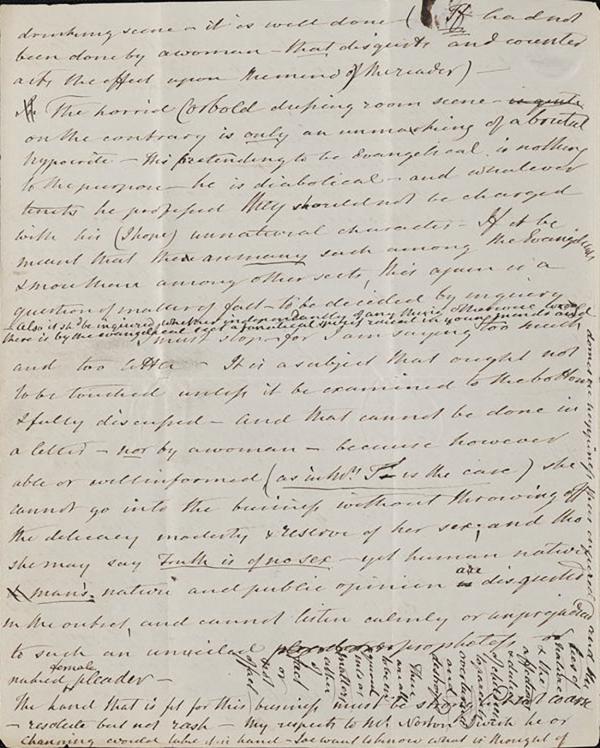 drinking scene - it is well done - ( If had not
been done by a woman - that disgusts and counter
acts the effect upon the mind of the reader) -
The horrid (or bold dressing room scene - is quite
on the contrary is only an unmasking of a brutal
hypocrite - His pretending to be Evangelical is nothing
to the purpose - he is diabolical - and whatever
tenets he professed they should not be charged
with his (I hope) unnatural character - If it be
meant that there are many such among the Evangelicals
& more than among other sects, this again is a
question of matter of fact - to be decided by inquiry
Also it shd be inquired whether independently of any
there is by the evangelical
must stop for I am saying too much
and too little - It is a subject that ought not
to be touched unless it be examined to the bottom
& fully discussed - and that cannot be done in
a letter - nor by a woman - because however
able or well informed (as in Mrs T- is the case) she
cannot go into the business without throwing off
the delicacy modesty & reserve of her sex; and tho
she may say Truth is of no sex - yet human nature
& man's nature and public opinion are disgusted
in the outset, and cannot listen calmly or unprejudiced
to such an unveiled prophetess - or
naked female pleader -
The hand that is fit for this business must be strong not coarse
- resolute but not rash - My respects to Mr. Norton I wish he or
Channing would take it in hand - I want to know what is thought of
domestic happiness